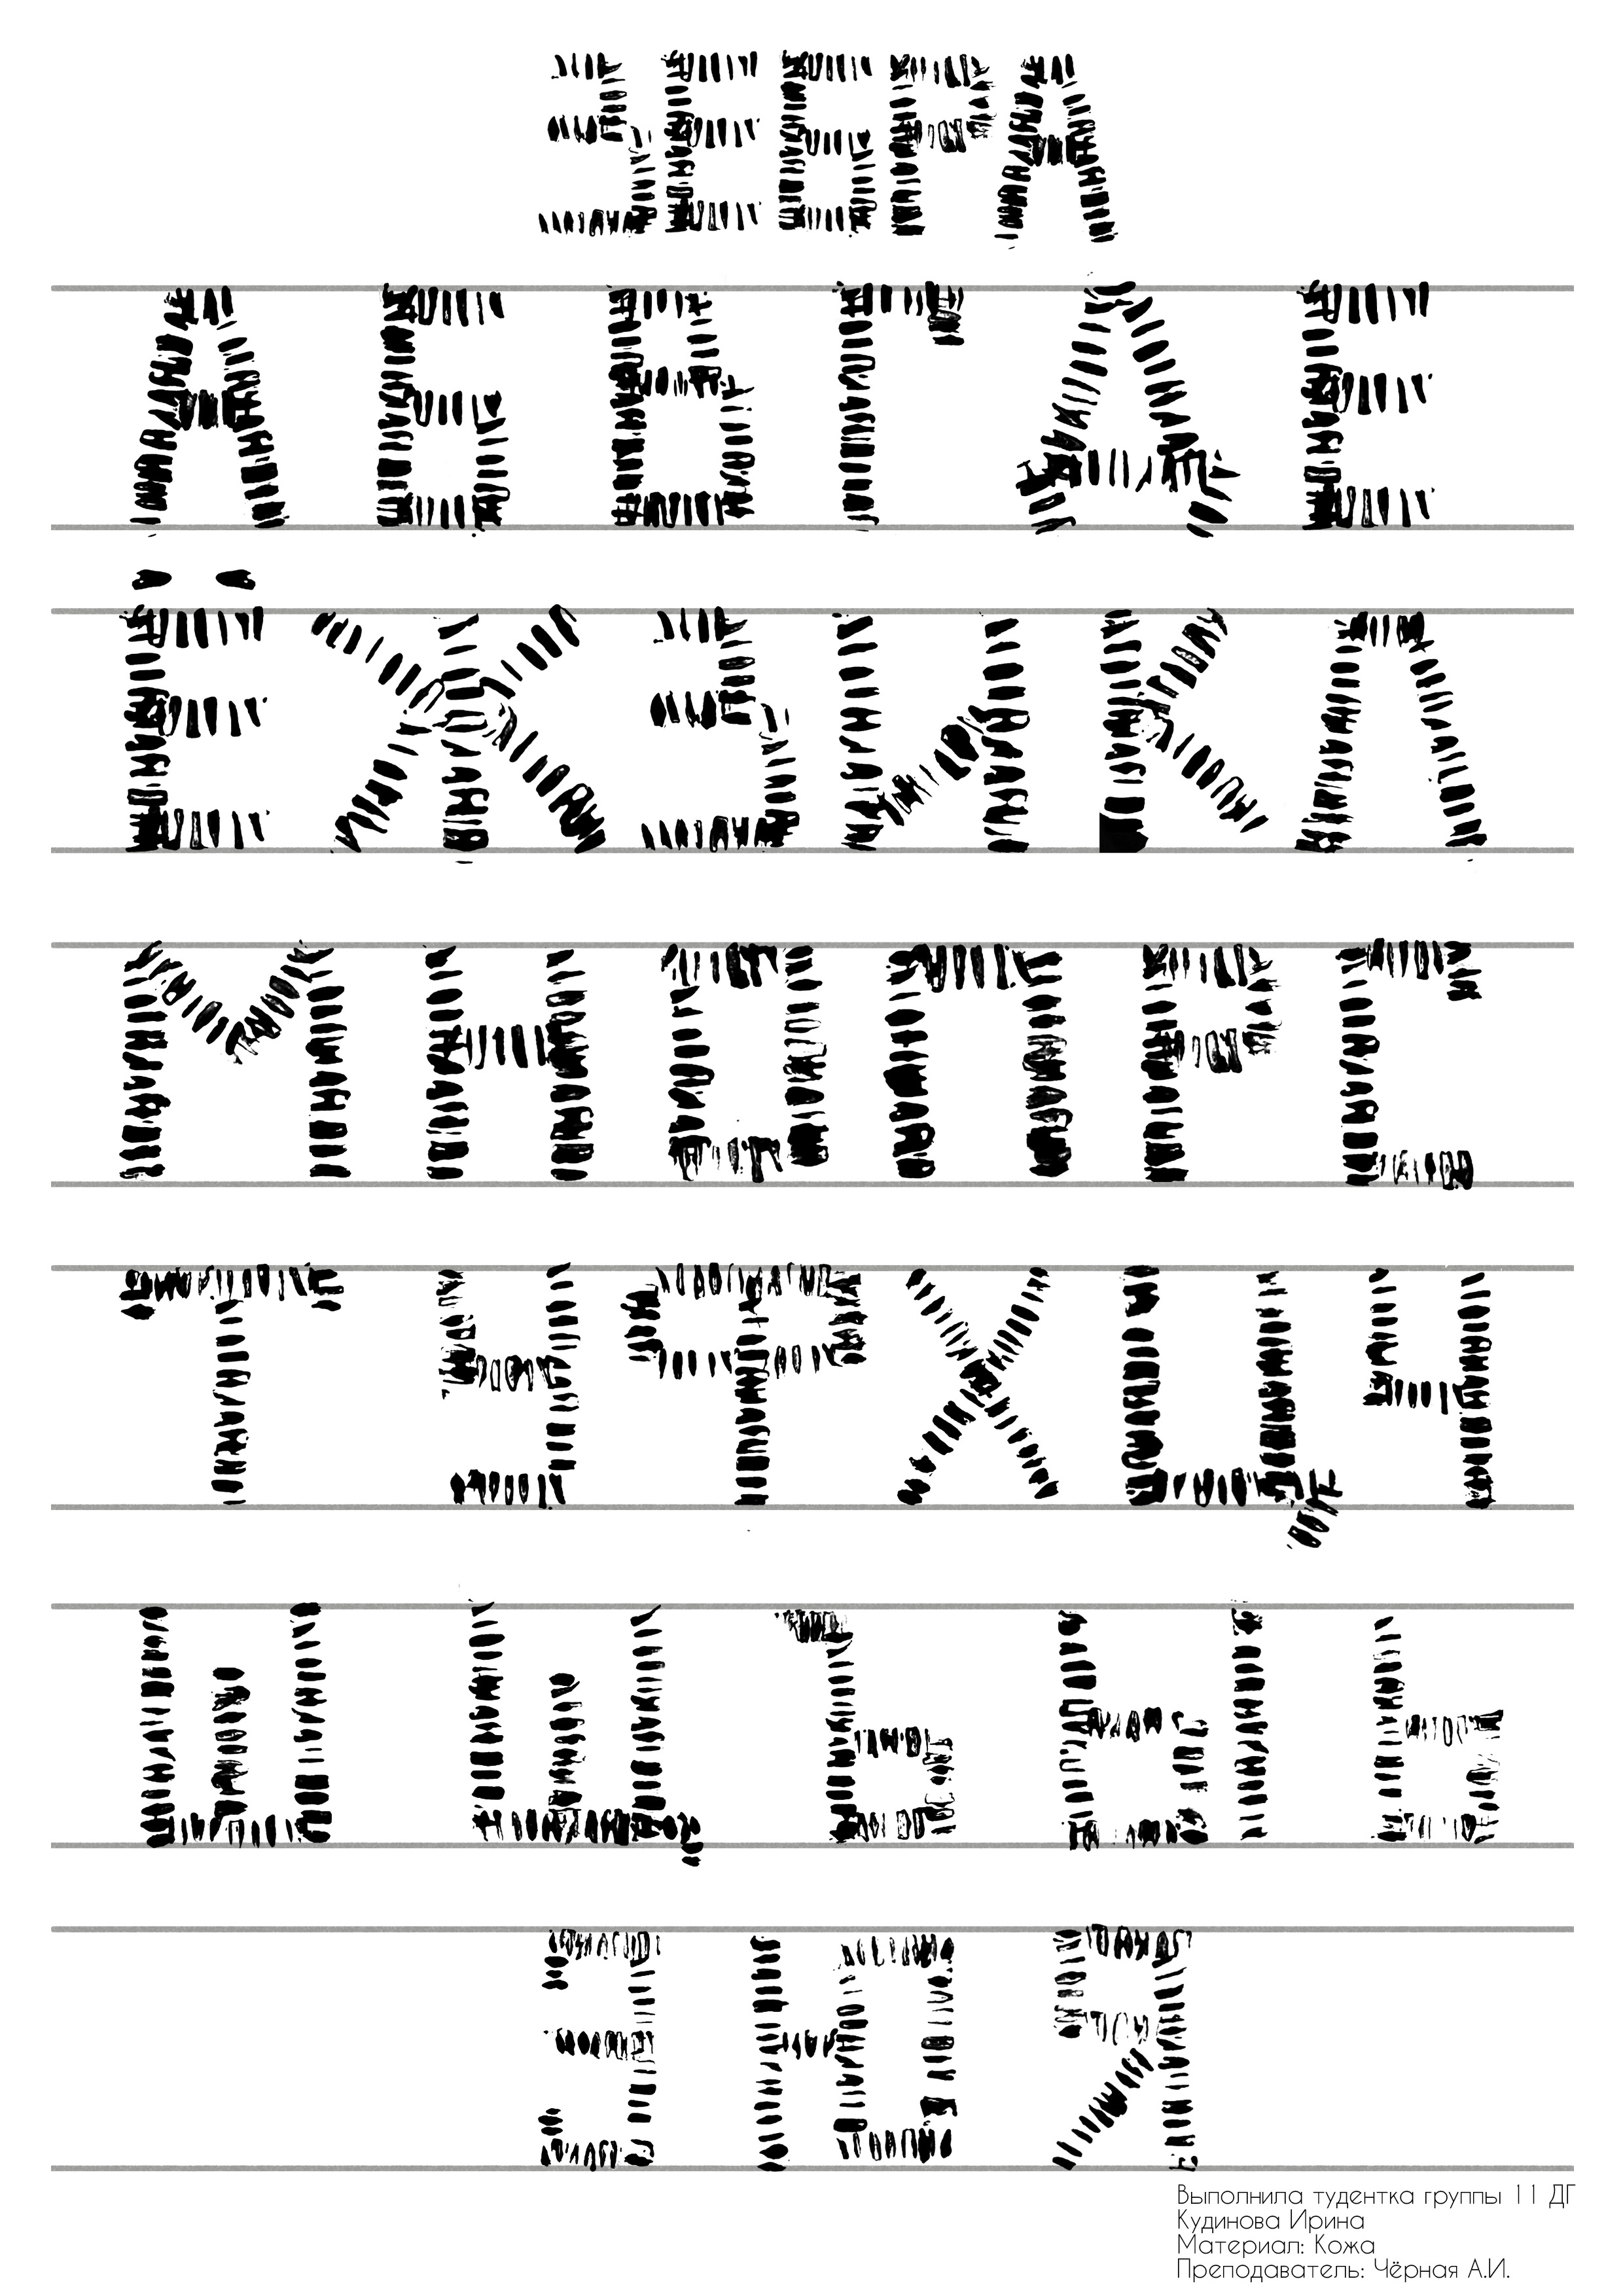 ЗЕБРА
А Б В Г Д Е
Ё Ж З И К Л
М Н О П Р С
Т У Ф Х Ц Ч
Ш Щ Ъ Ы Ь
Э Ю Я
Выполнила тудентка группы 11 ДГ
Кудинова Ирина
Материал: Кожа
Преподаватель: Чёрная А.И.